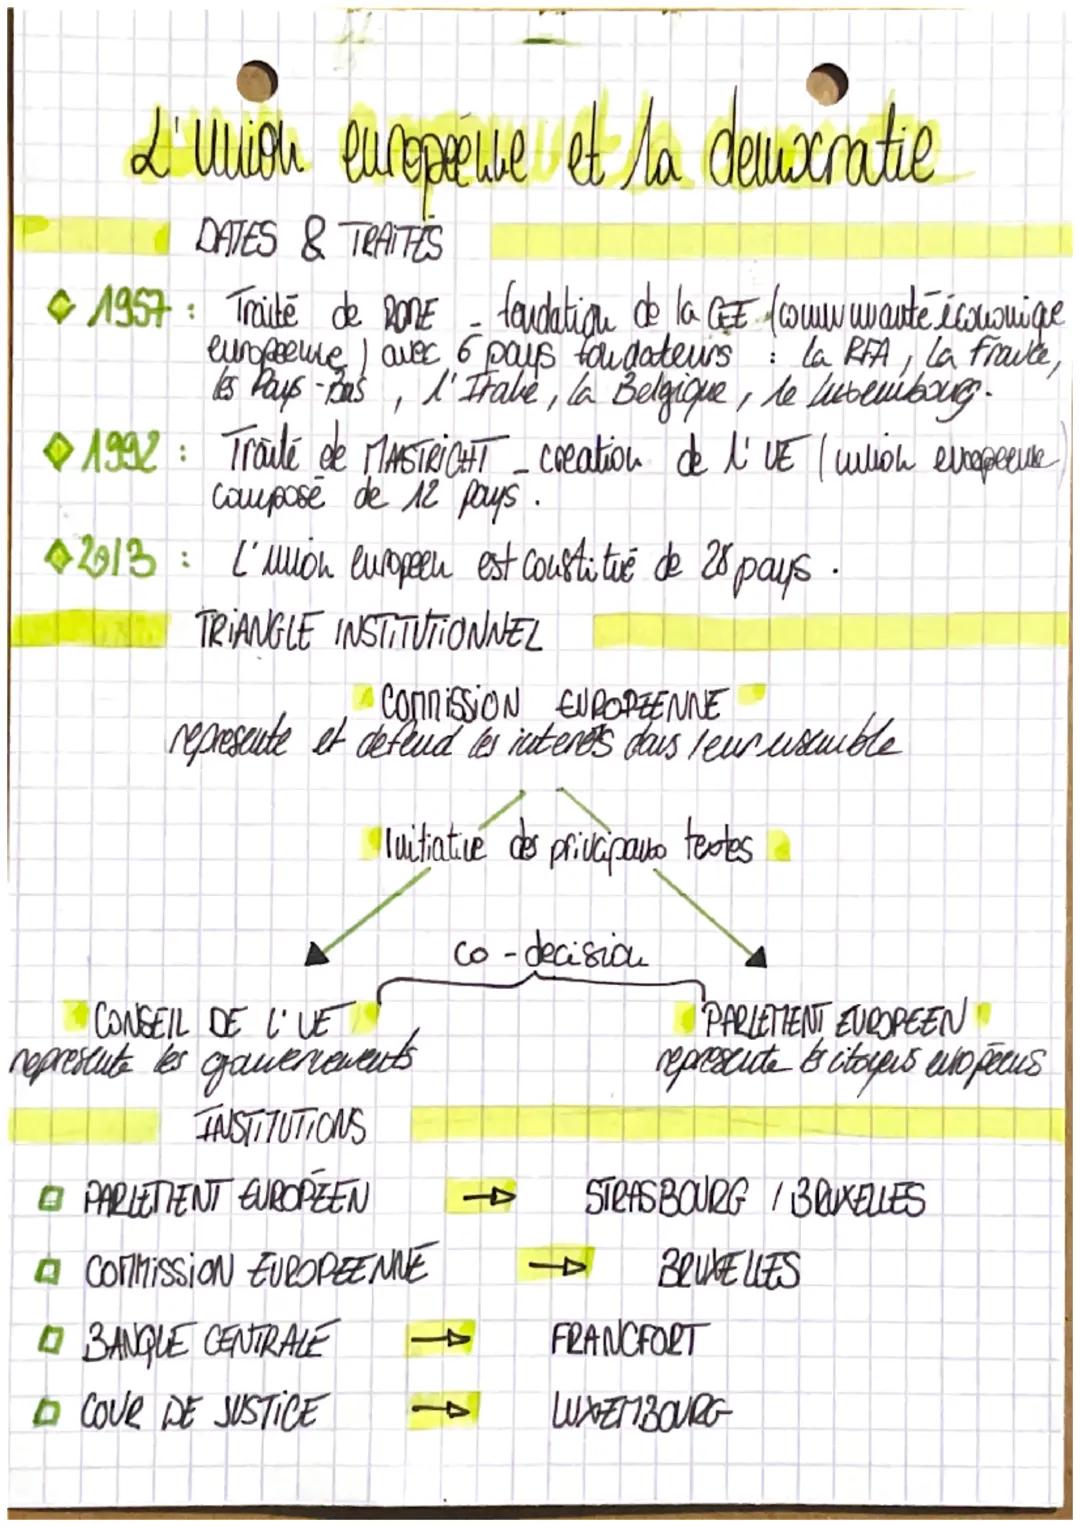 L'Union européenne et la democratie
DATES & TRAITÉS
1957 : Traité de ROME - fondation de la CEE (communauté économique
européenne) avec 6 pays fondateurs : La RFA, La France,
les Pays-Bas, l'Italie, la Belgique, le Luxembourg.
1992 : Traité de MAASTRICHT - creation de l'UE (union européenne)
composé de 12 pays.
2013 : L'union européen est constitué de 28 pays.
TRIANGLE INSTITUTIONNEL
COMMISSION EUROPÉENNE
represente et defend les interêts dans leur ensemble
Initiative des principaux textes
co-decision
CONSEIL DE L'UE
PARLEMENT EUROPEEN
represente les gouvernements
represente les citoyens européens
INSTITUTIONS
PARLEMENT EUROPÉEN → STRASBOURG / BRUXELLES
COMMISSION EUROPEENNE → BRUXELLES
BANQUE CENTRALE → FRANCFORT
COUR DE JUSTICE → LUXEMBOURG